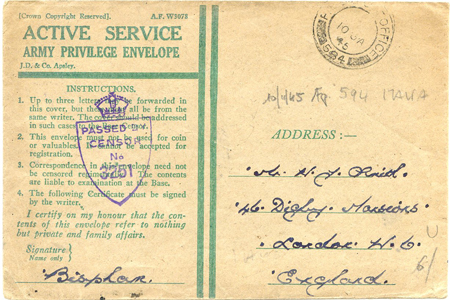 [Crown Copyright Reserved].
A.F. W3078
ACTIVE SERVICE
ARMY PRIVILEGE ENVELOPE
J.D. & Co. Apsley.
INSTRUCTIONS.
1. Up to three letters may be forwarded in this cover, but they must all be from the same writer. The cover should be addressed in such case to the Base Censor.
2. This envelope must not be used for coin or valuables. It cannot be accepted for registration.
3. Correspondence in this envelope need not be censored regimentally. The contents are liable to examination at the Base.
4. The following Certificate must be signed by the writer:
I certify on my honour that the contents of this envelope refer to nothing but private and family affairs.
Signature
Name only
PASSED BY
CENSOR
No
3251
OFFICE
10 JA
45
594
10/1/45 594
ADDRESS :—
Mr. H. J.
46. Digby Mansions
London W. 6
England
6/